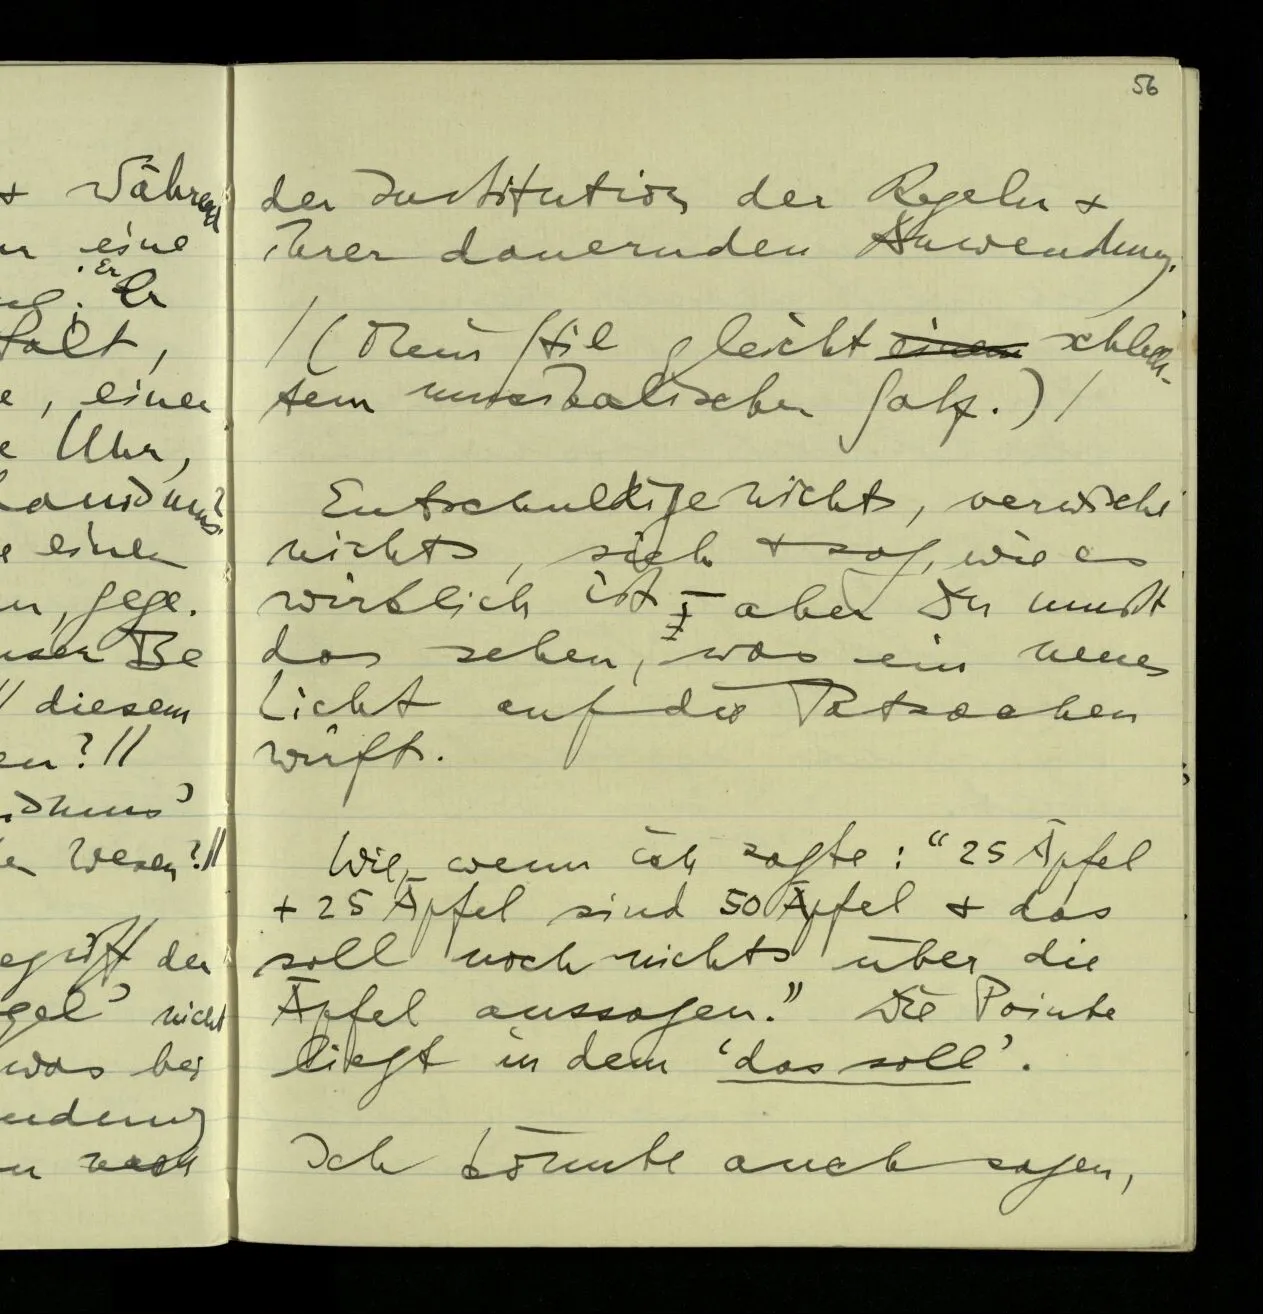 + Während
eine
Er
Er
, einer
Uhr,
einen
, gege.
Be
// diesem
?//
Wesen?//
der
nicht
was bei
noch
56
der Institution der Regeln +
ihrer dauernden Anwendung.
/(Mein Stil gleicht einem schlech-
tem musikalischen Satz.)/
Entschuldige nichts, verwische
nichts, sieh + sag, wie es
wirklich ist – aber Du mußt
das sehen, was ein neues
Licht auf die Tatsachen
wirft.
Wie, wenn ich sagte: “25 Äpfel
+ 25 Äpfel sind 50 Äpfel + das
soll noch nichts über die
Äpfel aussagen.” Die Pointe
liegt in dem ‘das soll’.
Ich könnte auch sagen,